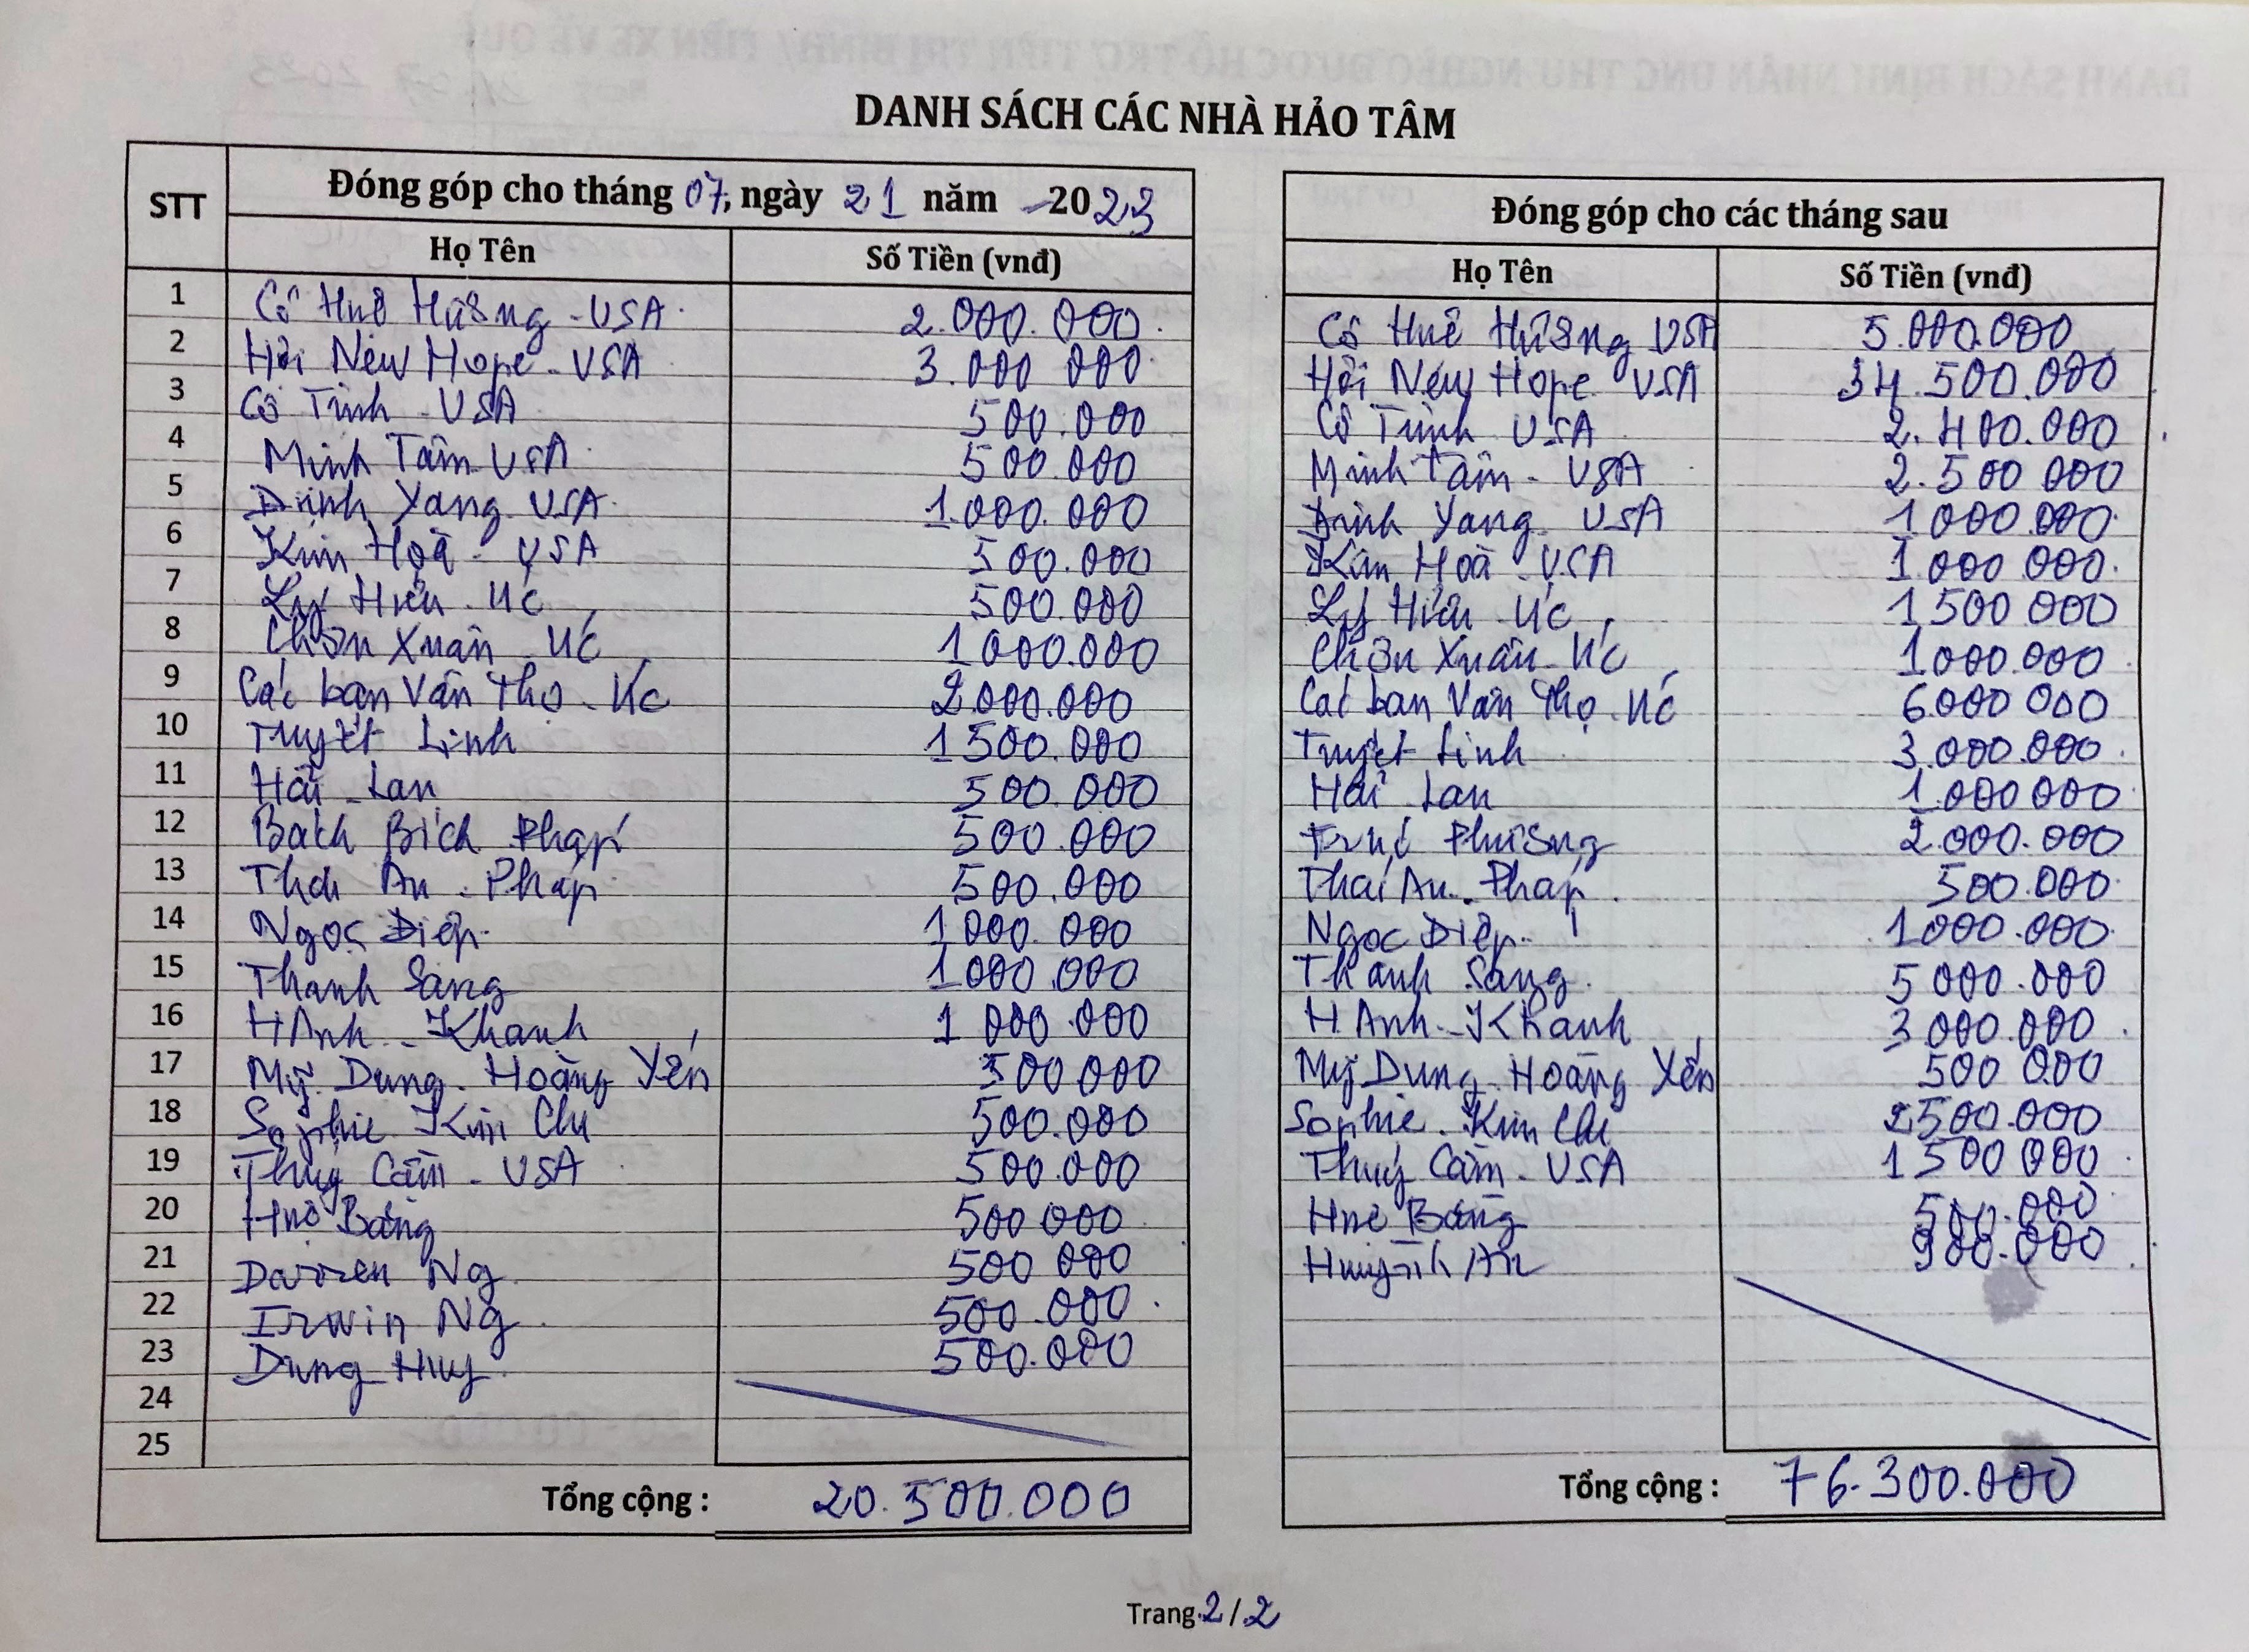 DANH SÁCH CÁC NHÀ HẢO TÂM
STT
Đóng góp cho tháng 07, ngày 21 năm 2023
Họ Tên Số Tiền (vnđ)
1 Cô Huê Hương - USA. 2.000.000.
2 Hội New Hope - USA 3.000 000.
3 Cô Trinh - USA 500.000
4 Minh Tâm - USA 500.000
5 Dinh Yang USA. 1.000.000
6 Kim Hoà - USA 500.000
7 Lý Hiếu - Úc 500.000
8 Chơn Xuân - Úc 1 000.000
9 Các bạn Vạn Thọ - Úc 2.000.000
10 Tuyết Linh 1 500.000
11 Hải - Lan 500.000
12 Bạch Bích Pháp 500.000
13 Thái An - Pháp. 500.000
14 Ngọc Điệp. 1 000.000
15 Thanh Sang 1 000.000
16 H Anh - Khanh 1 000.000
17 Mỹ Dung - Hoàng Yến 500 000
18 Sophie Kim Chi 500.000
19 Thuý Cầm - USA 500.000
20 Huê Bang 500 000
21 Darren Ng 500 000
22 Irwin Ng 500.000.
23 Dung Huy 500.000
24
25
Tổng cộng : 20.500.000
Đóng góp cho các tháng sau
Họ Tên Số Tiền (vnđ)
Cô Huê Hương USA 5.000.000
Hội New Hope USA 34.500.000
Cô Trinh USA 2.400.000
Minh Tâm - USA 2.500 000
Dinh Yang USA 1 000.000
Kim Hoà - USA 1.000 000.
Lý Hiếu - Úc 1 500 000
Chơn Xuân - Úc 1 000.000
Các bạn Vạn Thọ - Úc 6000 000
Tuyết Linh 3.000.000
Hải Lan 1.000 000
Trúc Phương 2.000.000
Thái An - Pháp. 500.000
Ngọc Điệp. 1000.000
Thanh Sang. 5 000.000
H Anh - Khanh 3 000.000
Mỹ Dung - Hoàng Yến 500 000
Sophie - Kim Chi 2500.000
Thuý Cầm - USA 1 500 000
Huê Bang 500.000
Huỳnh An 900.000
Tổng cộng : 76.300.000
Trang 2/2